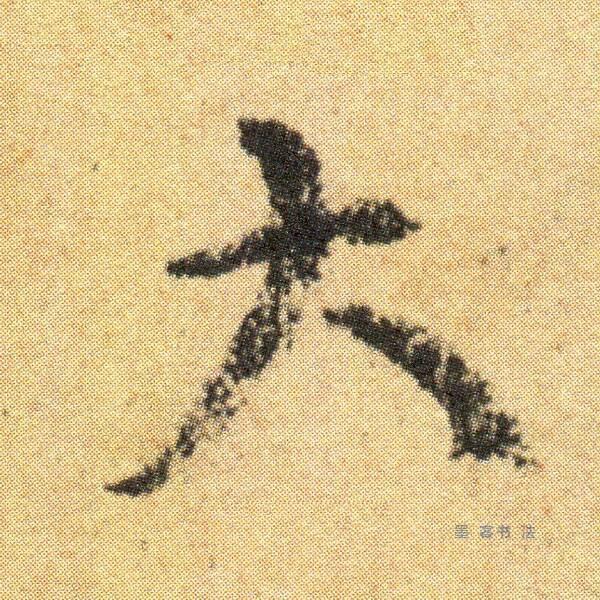 大
墨客书法